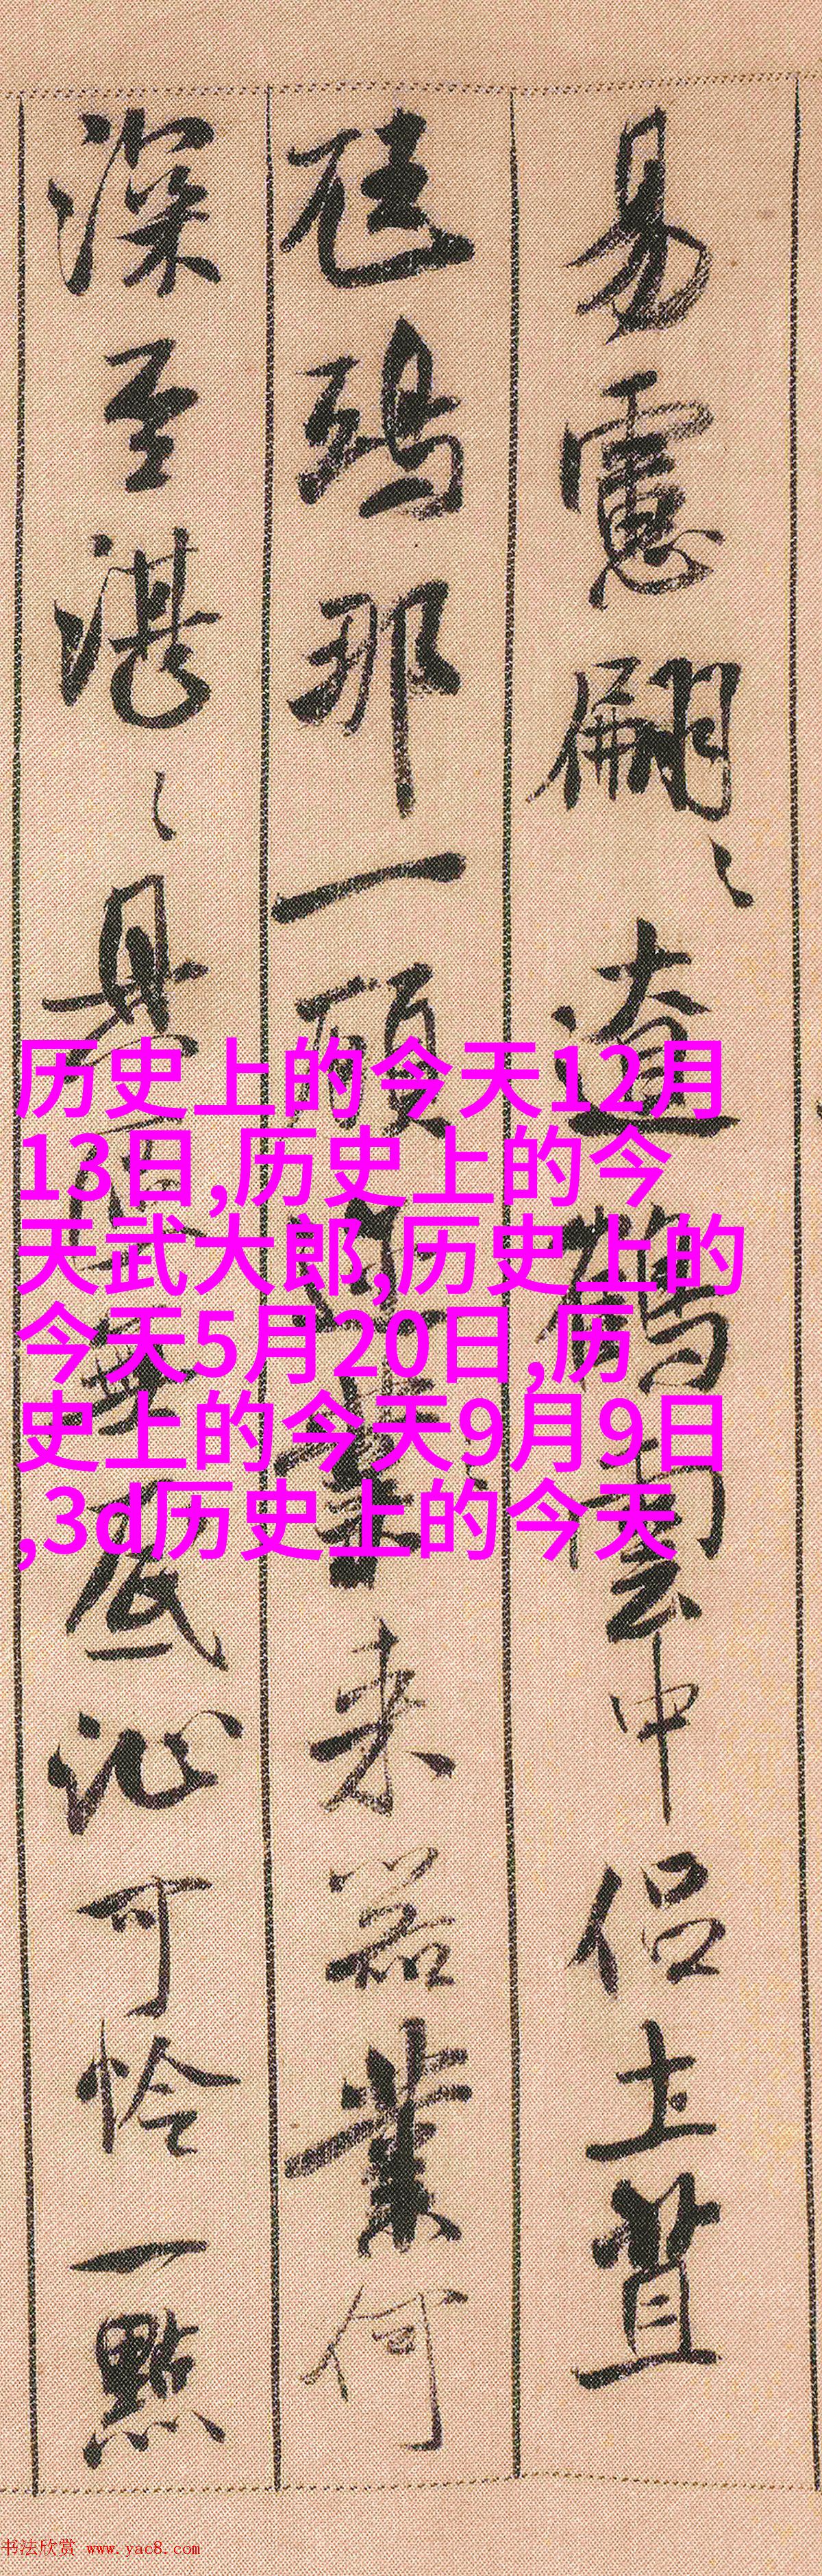 易慮翩〻遼鶴雲中侶土苴
尫鴉那一顧
来器業何
深至湛〻
無底沁可怜一點
历史上的今天12月
13日,历史上的今
天武大郎,历史上的
今天5月20日,历
史上的今天9月9日
,3d历史上的今天
书法欣赏 www.yac8.com